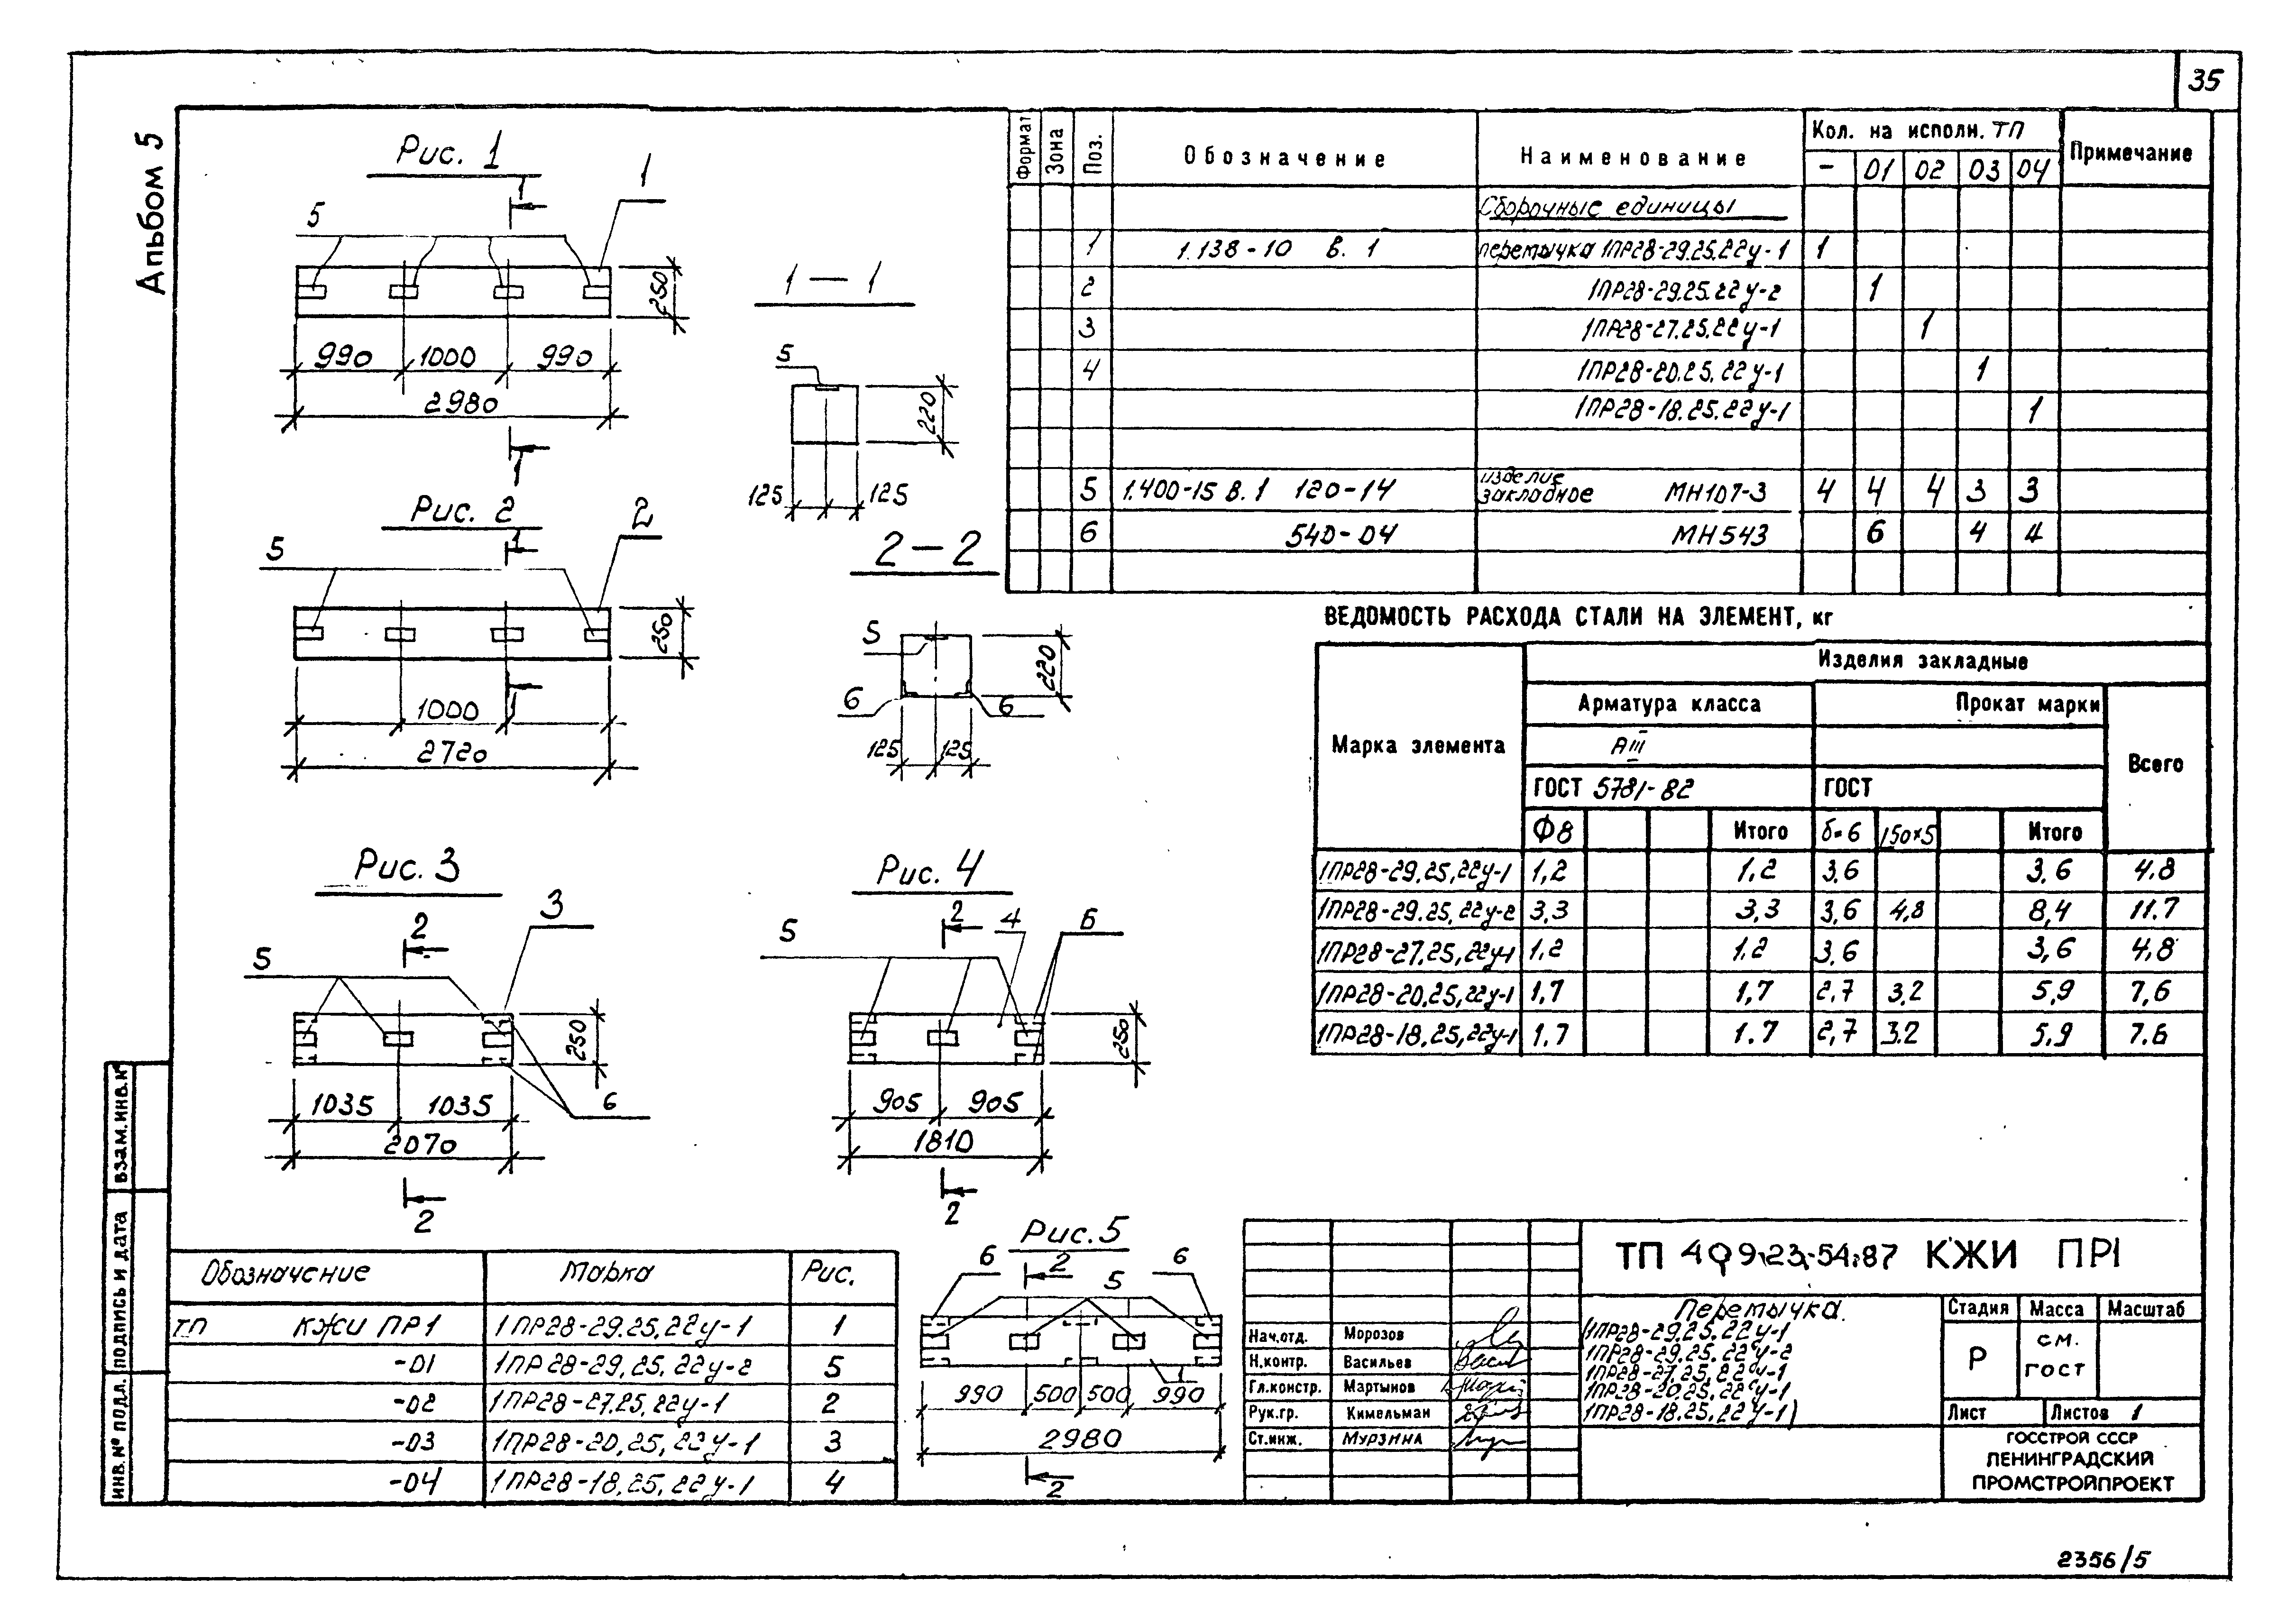 35
Альбом 5
Рис. 1
1
1
5
250
990 1000 990
2980
1
1 — 1
5
220
125 125
Рис. 2
2
1
5
250
1
1000
2720
2 — 2
5
220
6 6
125 125
Рис. 3
3
2
5
250
1035 1035
6
2070
2
Рис. 4
2 4 6
5
250
905 905
1810
2
Рис. 5
6 2 5 6
1
990 500 500 990
2980
2
Формат Зона Поз. Обозначение Наименование Кол. на исполн. ТП Примечание
– 01 02 03 04
Сборочные единицы
1 1.138-10 в. 1 перемычка 1ПР28-29.25.22у-1 1
2 1ПР28-29.25.22у-2 1
3 1ПР28-27.25.22у-1 1
4 1ПР28-20.25.22у-1 1
1ПР28-18.25.22у-1 1
5 1.400-15 В.1 120-14 изделие закладное МН107-3 4 4 4 3 3
6 540-04 МН543 6 4 4
ВЕДОМОСТЬ РАСХОДА СТАЛИ НА ЭЛЕМЕНТ, кг
Марка элемента Изделия закладные
Арматура класса Прокат марки Всего
АIII
ГОСТ 5781-82 ГОСТ
Ф8 Итого δ=6 L50×5 Итого
1ПР28-29.25,22у-1 1,2 1.2 3.6 3.6 4.8
1ПР28-29.25,22у-2 3.3 3,3 3,6 4,8 8,4 11.7
1ПР28-27,25,22у-1 1.2 1.2 3,6 3,6 4,8
1ПР28-20,25,22у-1 1,7 1,7 2,7 3.2 5,9 7,6
1ПР28-18,25,22у-1 1.7 1.7 2,7 3.2 5,9 7.6
Обозначение Марка Рис.
ТП КЖИ ПР1 1ПР28-29.25.22у-1 1
-01 1ПР28-29,25,22у-2 5
-02 1ПР28-27.25,22у-1 2
-03 1ПР28-20,25,22у-1 3
-04 1ПР28-18,25,22у-1 4
ВЗАМ.ИНВ.№
ПОДПИСЬ И ДАТА
ИНВ.№ ПОДЛ.
ТП 409-23-54.87 КЖИ ПР1
Нач.отд. Морозов
Н.контр. Васильев
Гл.констр. Мартынов
Рук.гр. Кимельман
Ст.инж. Мурзина
Перемычка
(1ПР28-29.25.22у-1
1ПР28-29.25.22у-2
1ПР28-27.25.22у-1
1ПР28-20.25.22у-1
1ПР28-18.25.22у-1)
Стадия Масса Масштаб
Р см. гост
Лист Листов 1
ГОССТРОЙ СССР
ЛЕНИНГРАДСКИЙ
ПРОМСТРОЙПРОЕКТ
2356/5